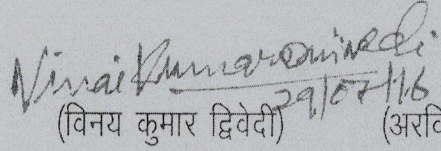 Vinai Kumar Dwivedi
29/07/16
(विनय कुमार द्विवेदी) (अरवि